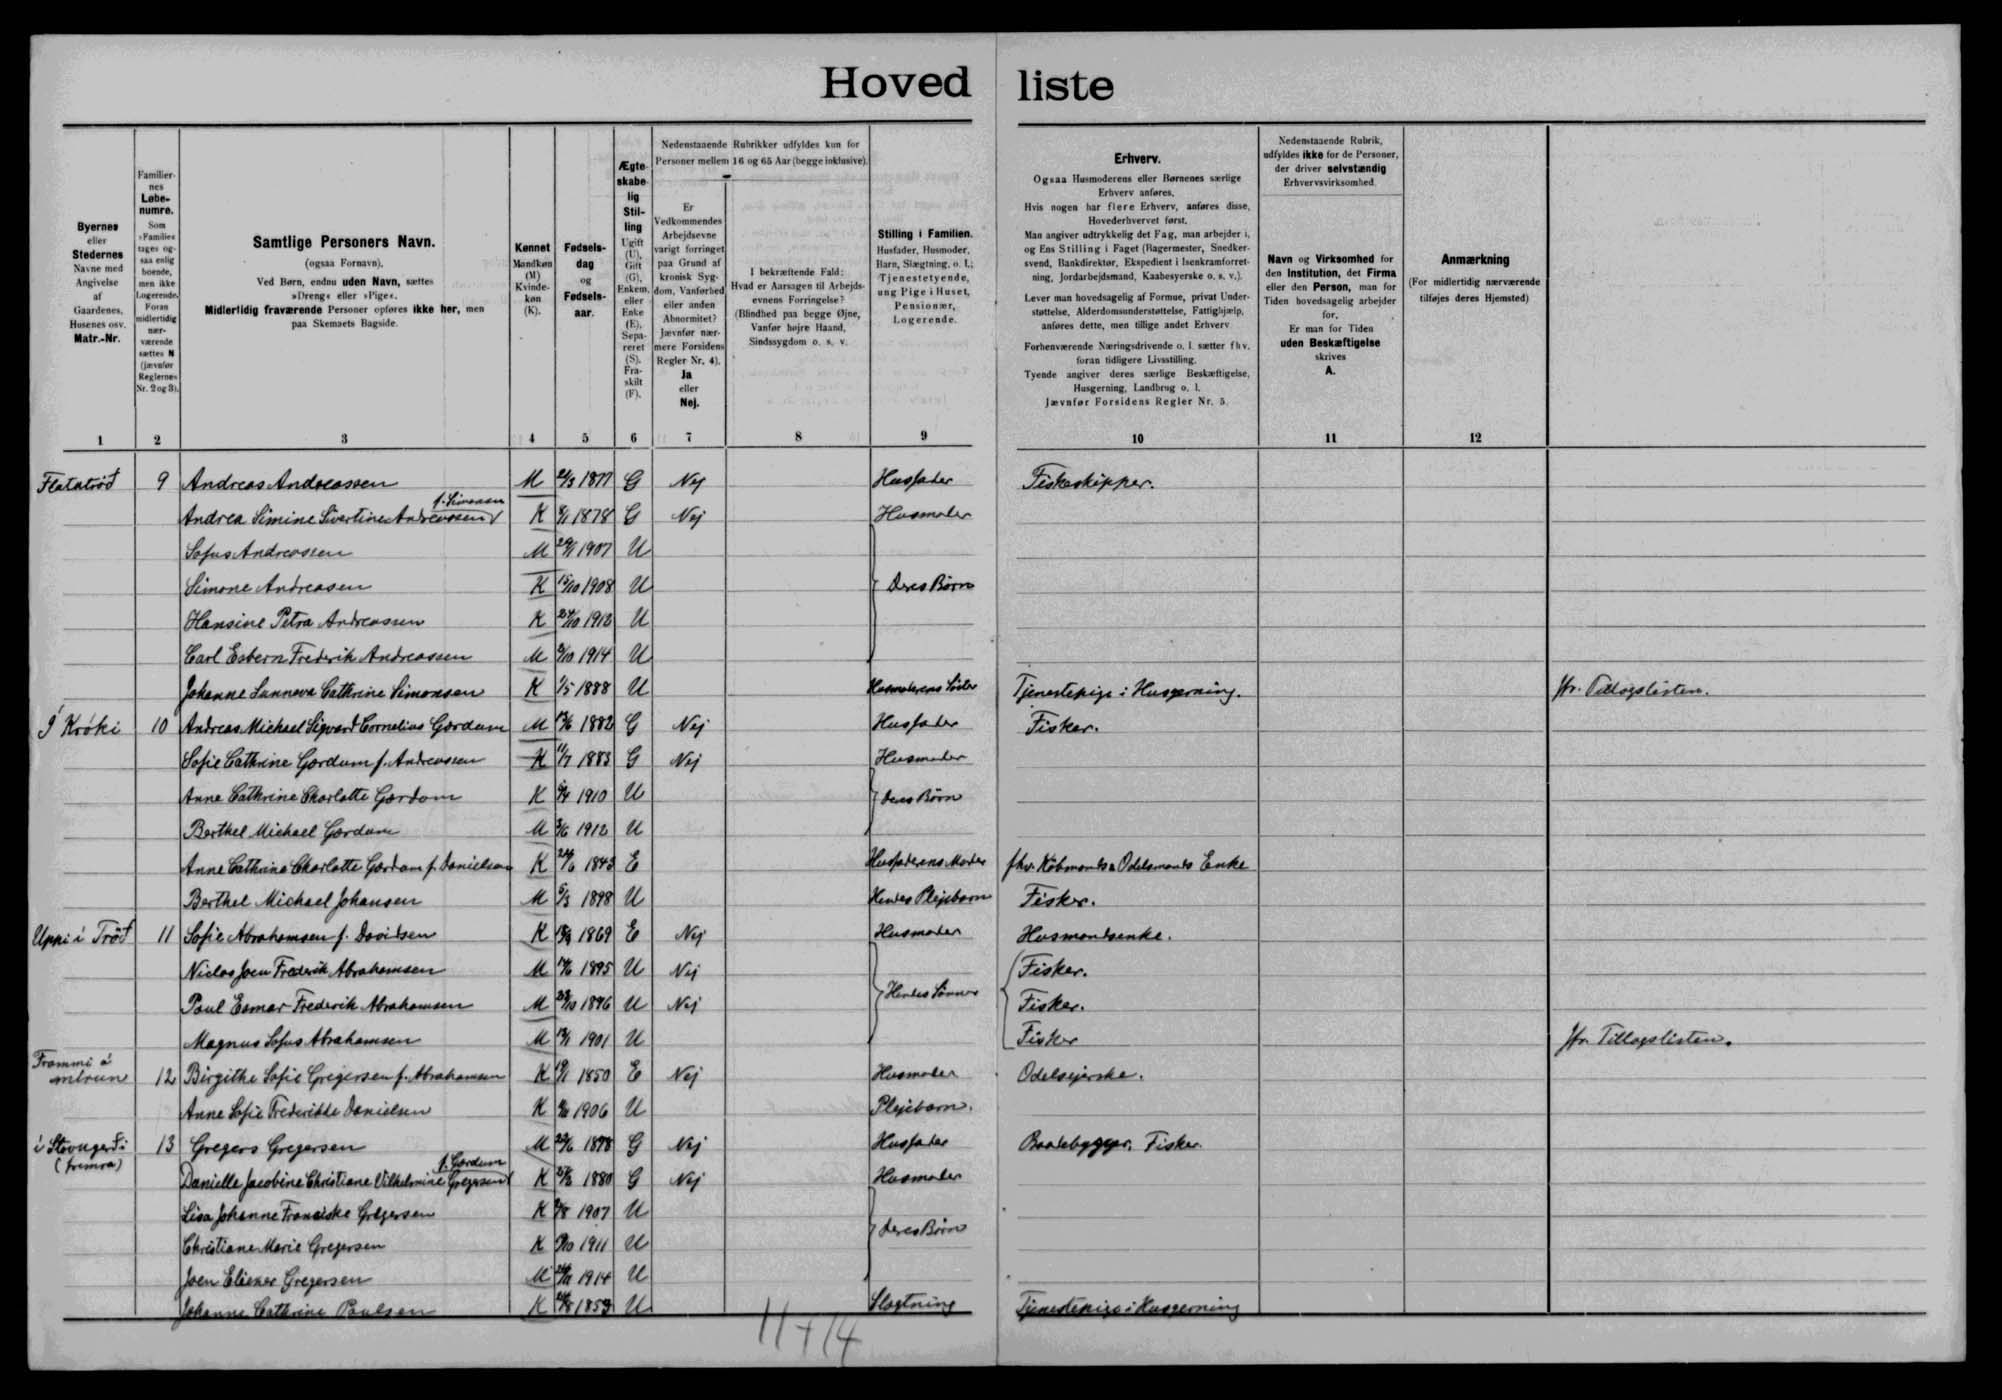 Hoved liste
Byernes
eller
Stedernes
Navne med
Angivelse
af
Gaardenes,
Husenes osv.
Matr.-Nr.
Familier-
nes
Løbe-
numre.
Som
»Familie«
tages og-
saa enlig
boende,
men ikke
Logerende.
Foran
midlertidig
nær-
værende
sættes N
(jævnfør
Reglernes
Nr. 2 og 3).
Samtlige Personers Navn.
(ogsaa Fornavn).
Ved Børn, endnu uden Navn, sættes
»Dreng« eller »Pige«.
Midlertidig fraværende Personer opføres ikke her, men
paa Skemaets Bagside.
Kønnet
Mandkøn
(M)
Kvinde-
køn
(K).
Fødsels-
dag
og
Fødsels-
aar.
Ægte-
skabe-
lig
Stil-
ling
Ugift
(U),
Gift
(G),
Enkem.
eller
Enke
(E),
Sepa-
reret
(S),
Fra-
skilt
(F).
Nedenstaaende Rubrikker udfyldes kun for
Personer mellem 16 og 65 Aar (begge inklusive).
Er
Vedkommendes
Arbejdsevne
varigt forringet
paa Grund af
kronisk Syg-
dom, Vanførhed
eller anden
Abnormitet?
Jævnfør nær-
mere Forsidens
Regler Nr. 4).
Ja
eller
Nej.
I bekræftende Fald:
Hvad er Aarsagen til Arbejds-
evnens Forringelse?
(Blindhed paa begge Øjne,
Vanfør højre Haand,
Sindssygdom o. s. v.
Stilling i Familien.
Husfader, Husmoder,
Barn, Slægtning, o. l.;
Tjenestetyende,
ung Pige i Huset,
Pensionær,
Logerende.
Erhverv.
Ogsaa Husmoderens eller Børnenes særlige
Erhverv anføres.
Hvis nogen har flere Erhverv, anføres disse,
Hovederhvervet først.
Man angiver udtrykkelig det Fag, man arbejder i,
og Ens Stilling i Faget (Bagermester, Snedker-
svend, Bankdirektør, Ekspedient i Isenkramforret-
ning, Jordarbejdsmand, Kaabesyerske o. s. v.).
Lever man hovedsagelig af Formue, privat Under-
støttelse, Alderdomsunderstøttelse, Fattighjælp,
anføres dette, men tillige andet Erhverv
Forhenværende Næringsdrivende o. l. sætter fhv.
foran tidligere Livsstilling.
Tyende angiver deres særlige Beskæftigelse,
Husgerning, Landbrug o. l.
Jævnfør Forsidens Regler Nr. 5.
Nedenstaaende Rubrik,
udfyldes ikke for de Personer,
der driver selvstændig
Erhvervsvirksomhed.
Navn og Virksomhed for
den Institution, det Firma
eller den Person, man for
Tiden hovedsagelig arbejder
for.
Er man for Tiden
uden Beskæftigelse
skrives
A.
Anmærkning
(For midlertidig nærværende
tilføjes deres Hjemsted)
1 2 3 4 5 6 7 8 9 10 11 12
Flatatröð 9 Andreas Andreassen M 1877 G Nej Husfader Fiskeskipper.
f. Simonsen
Andrea Simine Sivertine Andreassen K 1878 G Nej Husmoder
Sofus Andreassen M 1907 U
Simone Andreasen K 15/10 1908 U Deres Børn
Hansine Petra Andreassen K 24/10 1912 U
Carl Esbern Frederik Andreassen M 1914 U
Johanne Sunneva Cathrine Simonsen K 1/5 1888 U Husmoderens Søster Tjenestepige i Husgerning. Jfr. Tillægslisten.
Í Króki 10 Andreas Michael Sigvard Cornelius Gærdum M 1882 G Nej Husfader Fisker.
Sofie Cathrine Gærdum f. Andreassen K 11/7 1883 G Nej Husmoder
Anne Cathrine Charlotte Gærdum K 1910 U Deres Børn
Berthel Michael Gærdum M 1912 U
Anne Cathrine Charlotte Gærdum f. Danielsen K 1843 E Husfaderens Moder fhv. Købmands & Odelsmands Enke
Berthel Michael Johansen M 5/3 1898 U Hendes Plejebarn Fisker.
Uppi í Tröð 11 Sofie Abrahamsen f. Davidsen K 1869 E Nej Husmoder Husmandsenke.
Niclas Joen Frederik Abrahamsen M 1895 U Nej Fisker.
Poul Esmar Frederik Abrahamsen M 1896 U Nej Hendes Sønner Fisker.
Magnus Sofus Abrahamsen M 1901 U Fisker Jfr. Tillægslisten.
Frammi á
12 Birgithe Sofie Gregersen f. Abrahamsen K 1850 E Nej Husmoder Odelsejerske.
Anne Sofie Frederikke Danielsen K 1906 U Plejebarn.
13 Gregers Gregersen M 1878 G Nej Husfader Baadebygger. Fisker.
f. Gærdum
Danielle Jacobine Christiane Vilhelmine Gregersen K 1880 G Nej Husmoder
Lisa Johanne Franciske Gregersen K 1907 U
Christiane Marie Gregersen K 1911 U Deres Børn
Joen Eliezer Gregersen M 1914 U
Johanne Cathrine Poulsen K 1859 U Slægtning Tjenestepige i Husgerning
11 + 14